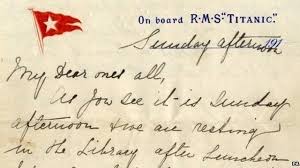 On board R·M·S "TITANIC."
191
Sunday afternoon
My Dear ones all,
As you see it is Sunday
afternoon & we are resting
in the Library after Luncheon